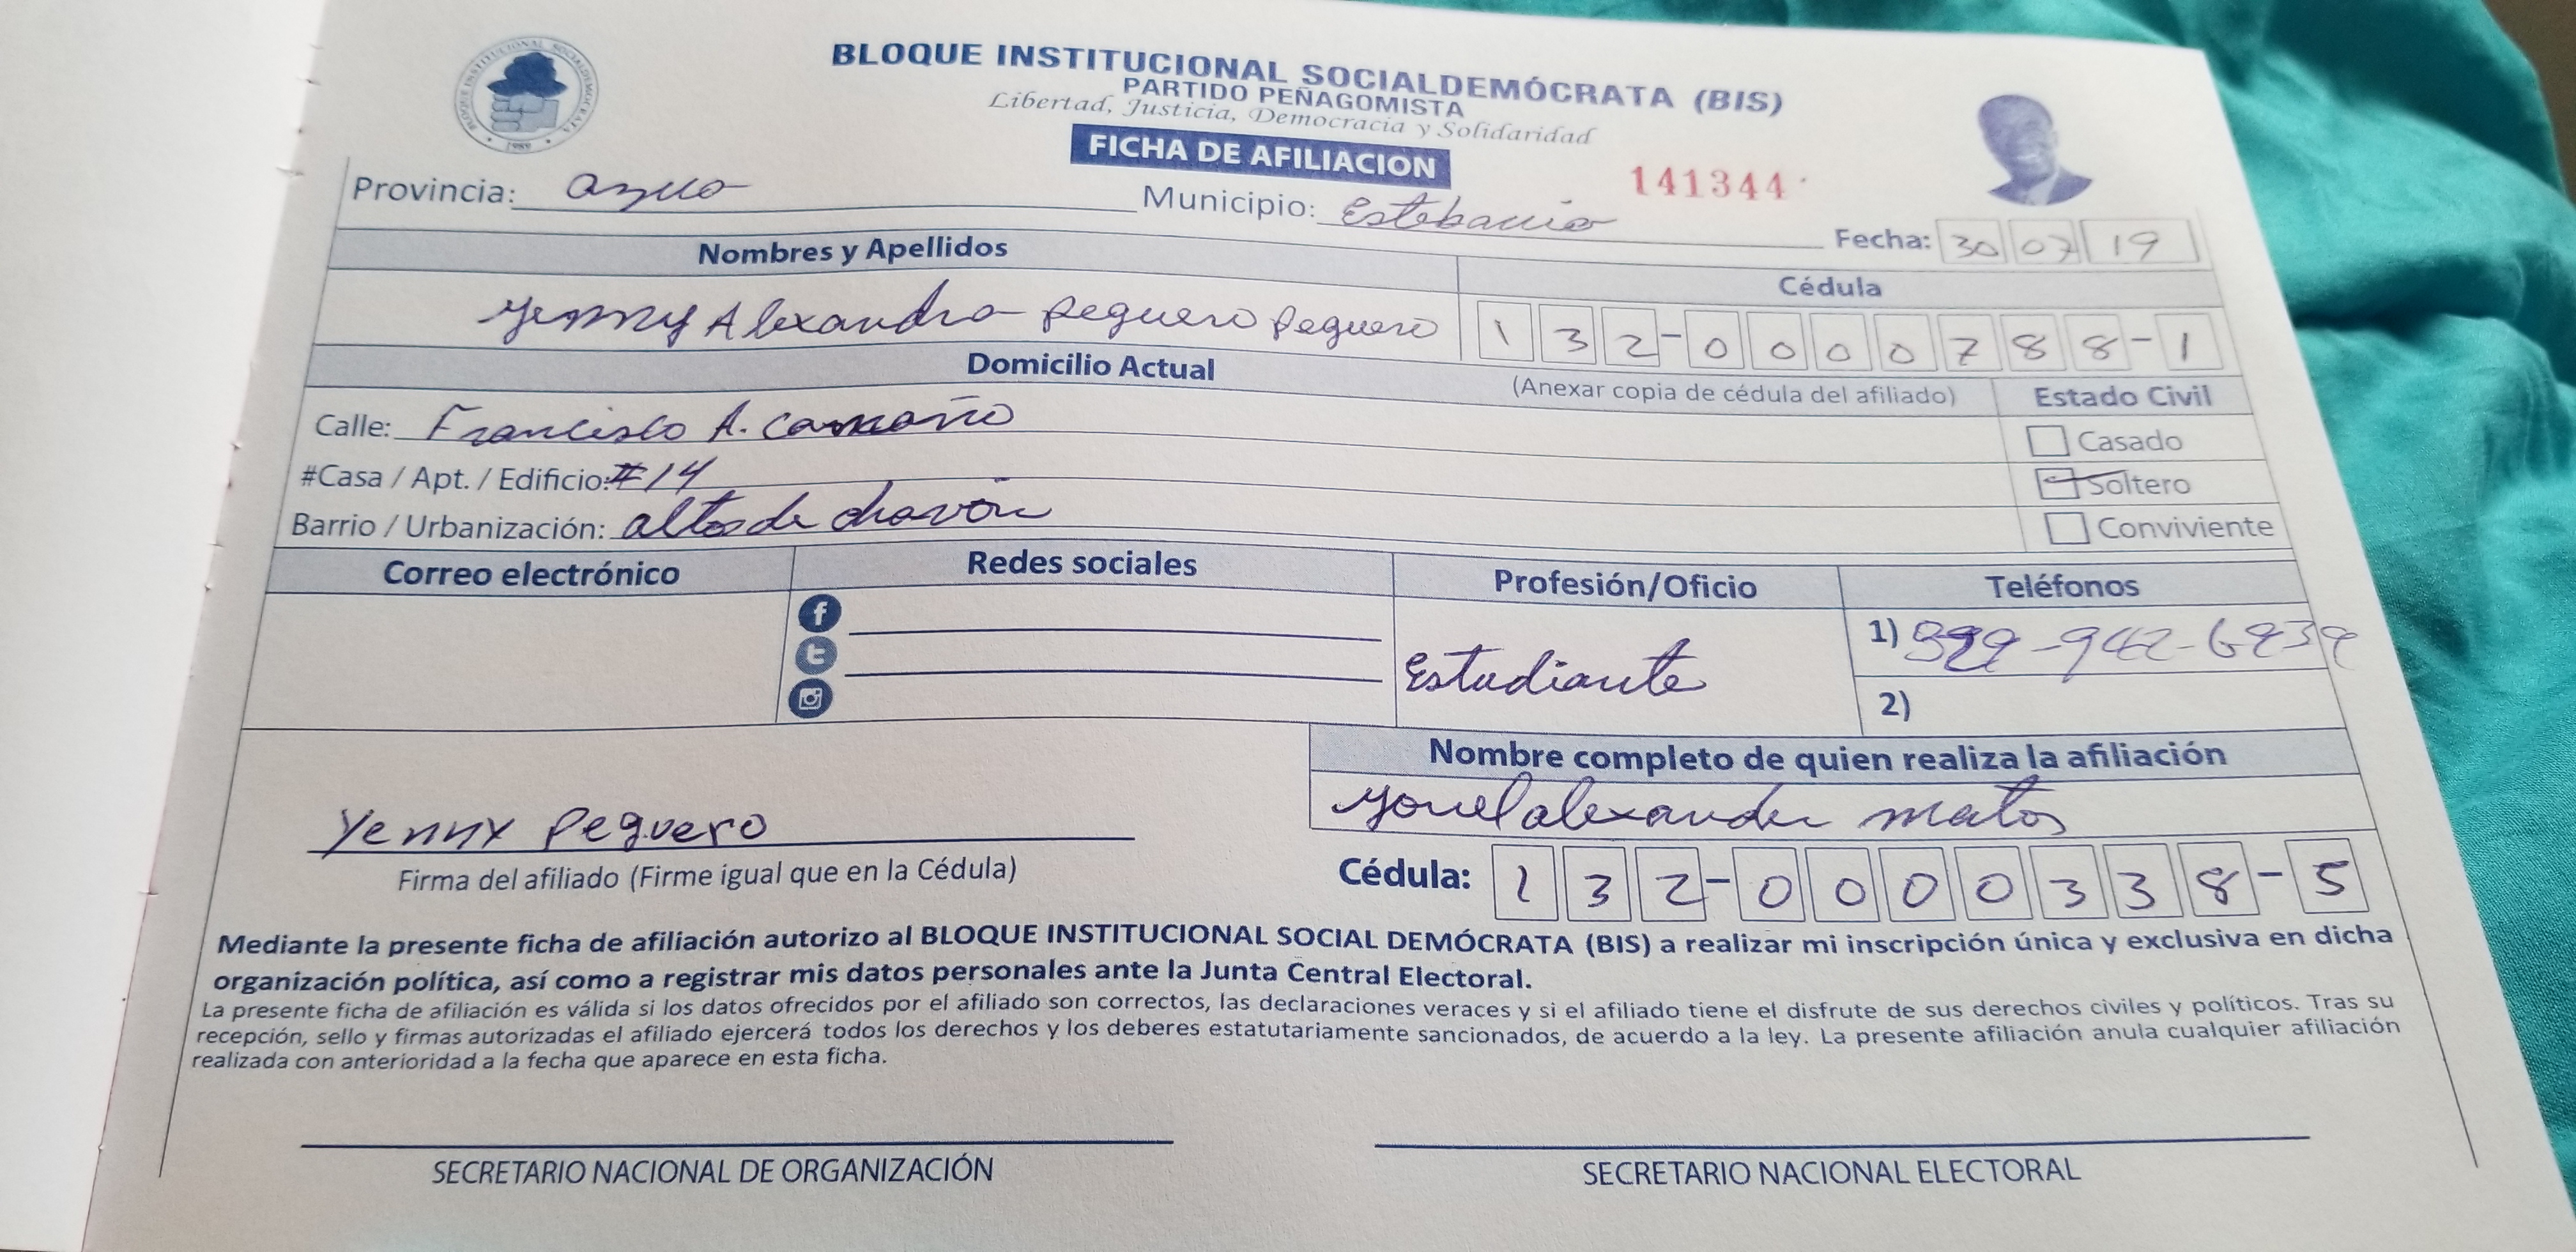 BLOQUE INSTITUCIONAL SOCIALDEMÓCRATA
1989
BLOQUE INSTITUCIONAL SOCIALDEMÓCRATA (BIS)
PARTIDO PEÑAGOMISTA
Libertad, Justicia, Democracia y Solidaridad
FICHA DE AFILIACION
141344
Provincia: azua Municipio: Estebania Fecha: 30 07 19
Nombres y Apellidos Cédula
Yenny Alexandra peguero peguero 132-0000788-1
Domicilio Actual (Anexar copia de cédula del afiliado) Estado Civil
Calle: Francisco A. Camaaño Casado
#Casa / Apt. / Edificio: #14 Soltero
Barrio / Urbanización: altos de chavón Conviviente
Correo electrónico Redes sociales Profesión/Oficio Teléfonos
f
t
Estudiante
1)
2)
Nombre completo de quien realiza la afiliación
alexander matos
Yenny Peguero
Firma del afiliado (Firme igual que en la Cédula)
Cédula: 132-0000338-5
Mediante la presente ficha de afiliación autorizo al BLOQUE INSTITUCIONAL SOCIAL DEMÓCRATA (BIS) a realizar mi inscripción única y exclusiva en dicha
organización política, así como a registrar mis datos personales ante la Junta Central Electoral.
La presente ficha de afiliación es válida si los datos ofrecidos por el afiliado son correctos, las declaraciones veraces y si el afiliado tiene el disfrute de sus derechos civiles y políticos. Tras su
recepción, sello y firmas autorizadas el afiliado ejercerá todos los derechos y los deberes estatutariamente sancionados, de acuerdo a la ley. La presente afiliación anula cualquier afiliación
realizada con anterioridad a la fecha que aparece en esta ficha.
SECRETARIO NACIONAL DE ORGANIZACIÓN SECRETARIO NACIONAL ELECTORAL